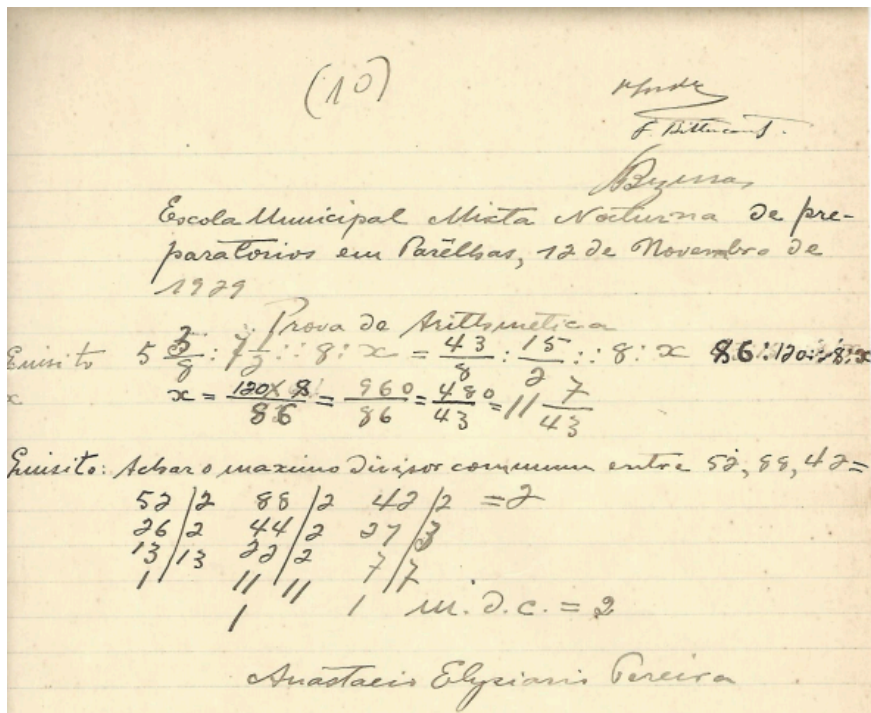 (10)
F. Bittencourt.
Bezerra
Escola Municipal Mixta Nocturna de pre-
paratorios em Parêlhas, 12 de Novembro de
1929
Prova de Arithmetica
Quisito 5 3/8 : 7 1/2 :: 8 : x = 43/8 : 15/2 :: 8 : x 86 : 120 :: 8 : x
x = 120 x 8/86 = 960/86 = 480/43 = 11 7/43
Quisito: Achar o maximo divisor commum entre 52, 88, 42 =
52 | 2 88 | 2 42 | 2 = 2
26 | 2 44 | 2 21 | 3
13 | 13 22 | 2 7 | 7
1 11 11 1
1 m. d. c. = 2
Anastacio Elysiario Pereira